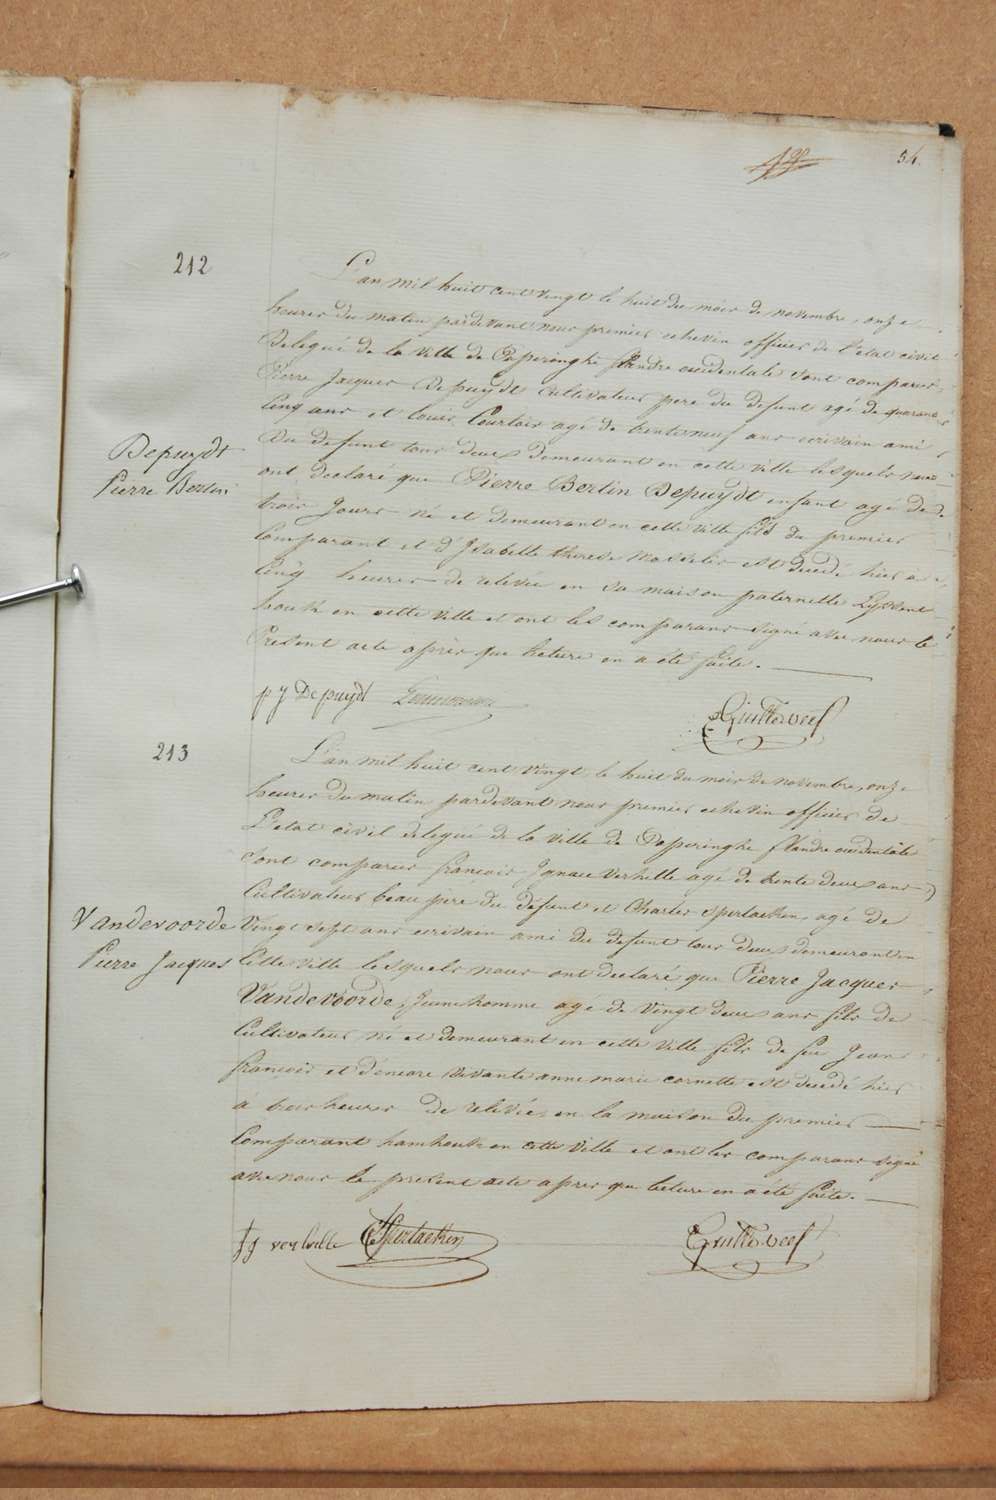 54.
212
L'an mil huit cent vingt le huit du mois de novembre, onze
heures du matin pardevant nous premier echevin officier de l'etat civil
delegué de la ville de Poperinghe flandre occidentale sont comparus
Pierre Jacques Depuydt cultivateur pere du defunt agé de quarante
cinq ans et Louis Courtois agé de trente neuf ans ecrivain ami
du defunt tous deux demeurant en cette ville lesquels nous
Depuydt
Pierre Bertin
ont declaré que Pierre Bertin Depuydt enfant agé de
trois jours né et demeurant en cette ville fils du premier
Comparant et d'Isabelle therese est decedé hier à
cinq heures de relevée en sa maison paternelle
houk en cette ville et ont les comparans signé avec nous le
Present acte après que lecture en a été faite.
p j Depuydt
213
L'an mil huit cent vingt le huit du mois de novembre, onze
heures du matin pardevant nous premier echevin officier de
L'etat civil delegué de la ville de Poperinghe flandre occidentale
sont comparus françois Ignace Verhille agé de trente deux ans
Cultivateur beau pere du défunt et Charles Spertaelken, agé de
Vandevoorde
Pierre Jacques
Vingt sept ans ecrivain ami du defunt tous deux demeurant en
Cette ville lesquels nous ont declaré que Pierre Jacques
Vandevoorde, Jeune homme agé de vingt deux ans fils de
Cultivateur né et demeurant en cette ville fils de feu Jean
françois et d'encore vivante anne marie cornette est decedé hier
à trois heures de relevée en la maison du premier
Comparant hamhouk en cette ville et ont les comparans signé
avec nous le present acte apres que lecture en a été faite.